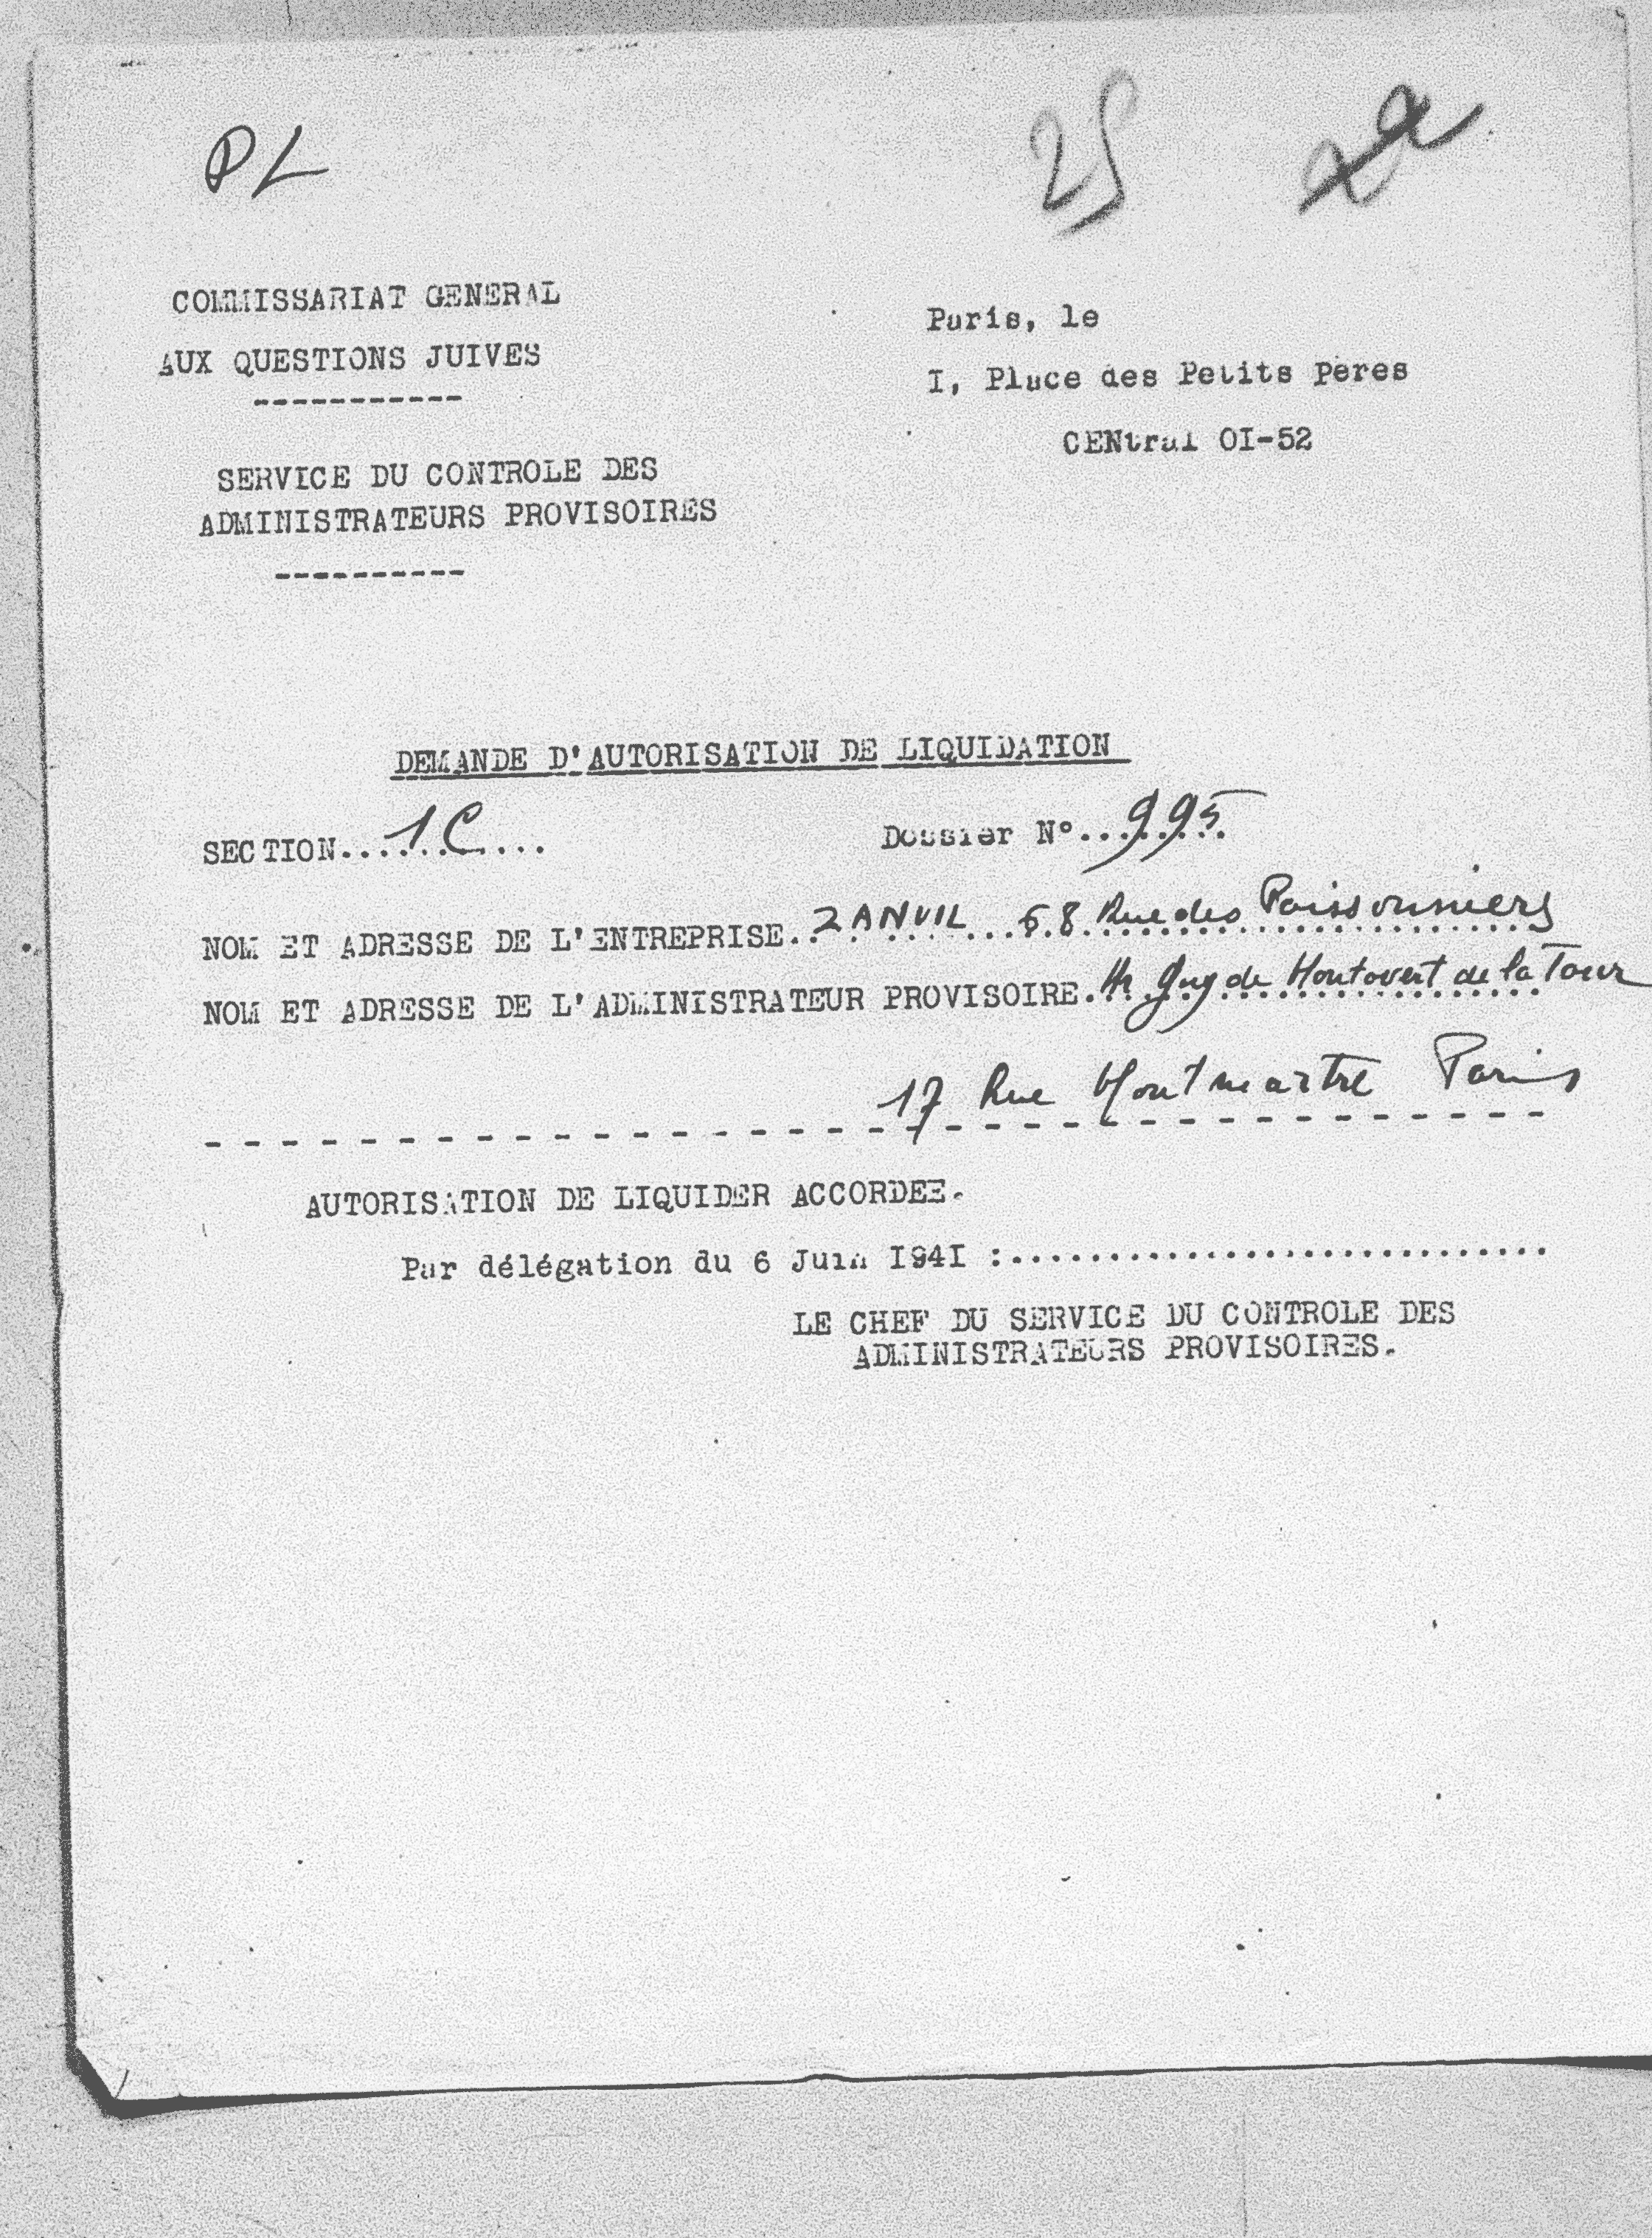 PL
25
COMMISSARIAT GENERAL
AUX QUESTIONS JUIVES
-----------
Paris, le
I, Place des Petits Peres
CENtral OI-52
SERVICE DU CONTROLE DES
ADMINISTRATEURS PROVISOIRES
----------
DEMANDE D'AUTORISATION DE LIQUIDATION
SECTION....1C.... Dossier N°..995..
NOM ET ADRESSE DE L'ENTREPRISE..ZANVIL...68 Rue des Poissonniers
NOM ET ADRESSE DE L'ADMINISTRATEUR PROVISOIRE.Mr Guy de Montovert de la Tour
17 Rue Montmartre Paris
- - - - - - - - - - - - - - - - - - - - - - - - - - - - - - - - - - -
AUTORISATION DE LIQUIDER ACCORDEE.
Par délégation du 6 Juin I94I :............................
LE CHEF DU SERVICE DU CONTROLE DES
ADMINISTRATEURS PROVISOIRES.